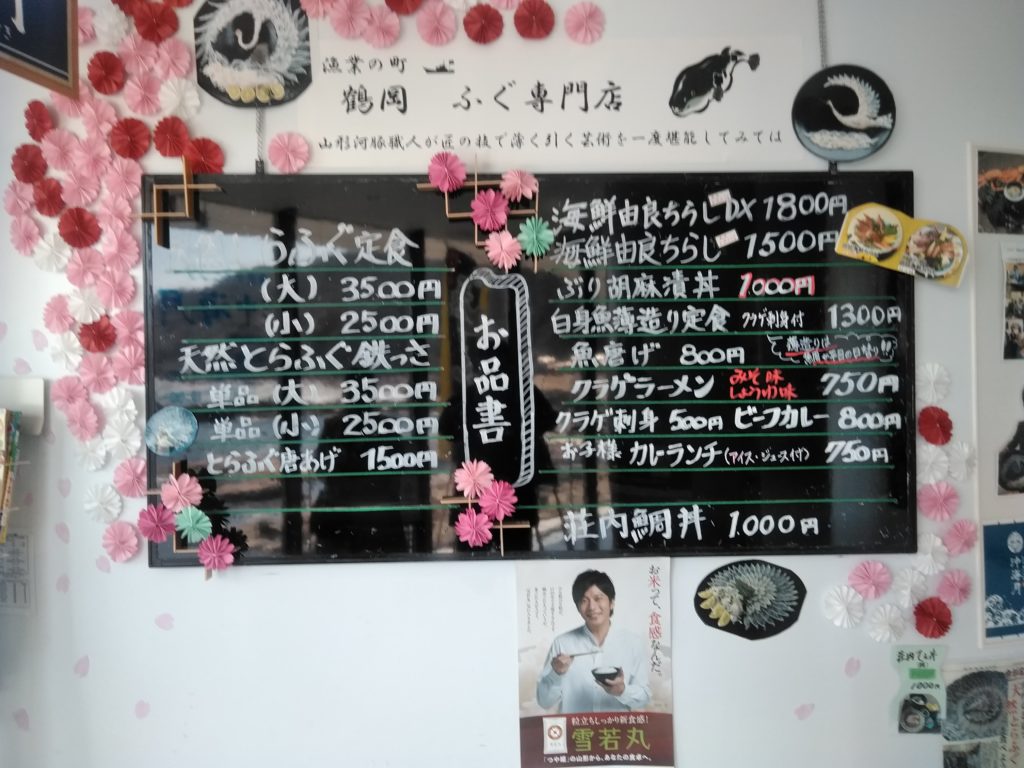 漁業の町
鶴岡 ふぐ専門店
山形河豚職人が匠の技で薄く引く芸術を一度堪能してみては
らふぐ定食
(大) 3500円
(小) 2500円
天然とらふぐ鉄っさ
単品(大) 3500円
単品(小) 2500円
とらふぐ唐あげ 1500円
お品書
海鮮由良ちらしDX 1800円
海鮮由良ちらし 1500円
ぶり胡麻漬丼 1000円
白身魚薄造り定食 クラゲ刺身付 1300円
魚唐げ 800円 薄造りは
クラゲラーメン みそ味 しょうゆ味 750円
クラゲ刺身 500円 ビーフカレー 800円
お子様 カレーランチ(アイス・ジュース付) 750円
荘内鯛丼 1.000円
お米って、食感なんだ。
粒立ちしっかり新食感!
雪若丸
「つや姫」の山形から、あなたの食卓へ。
沖海月
1000円